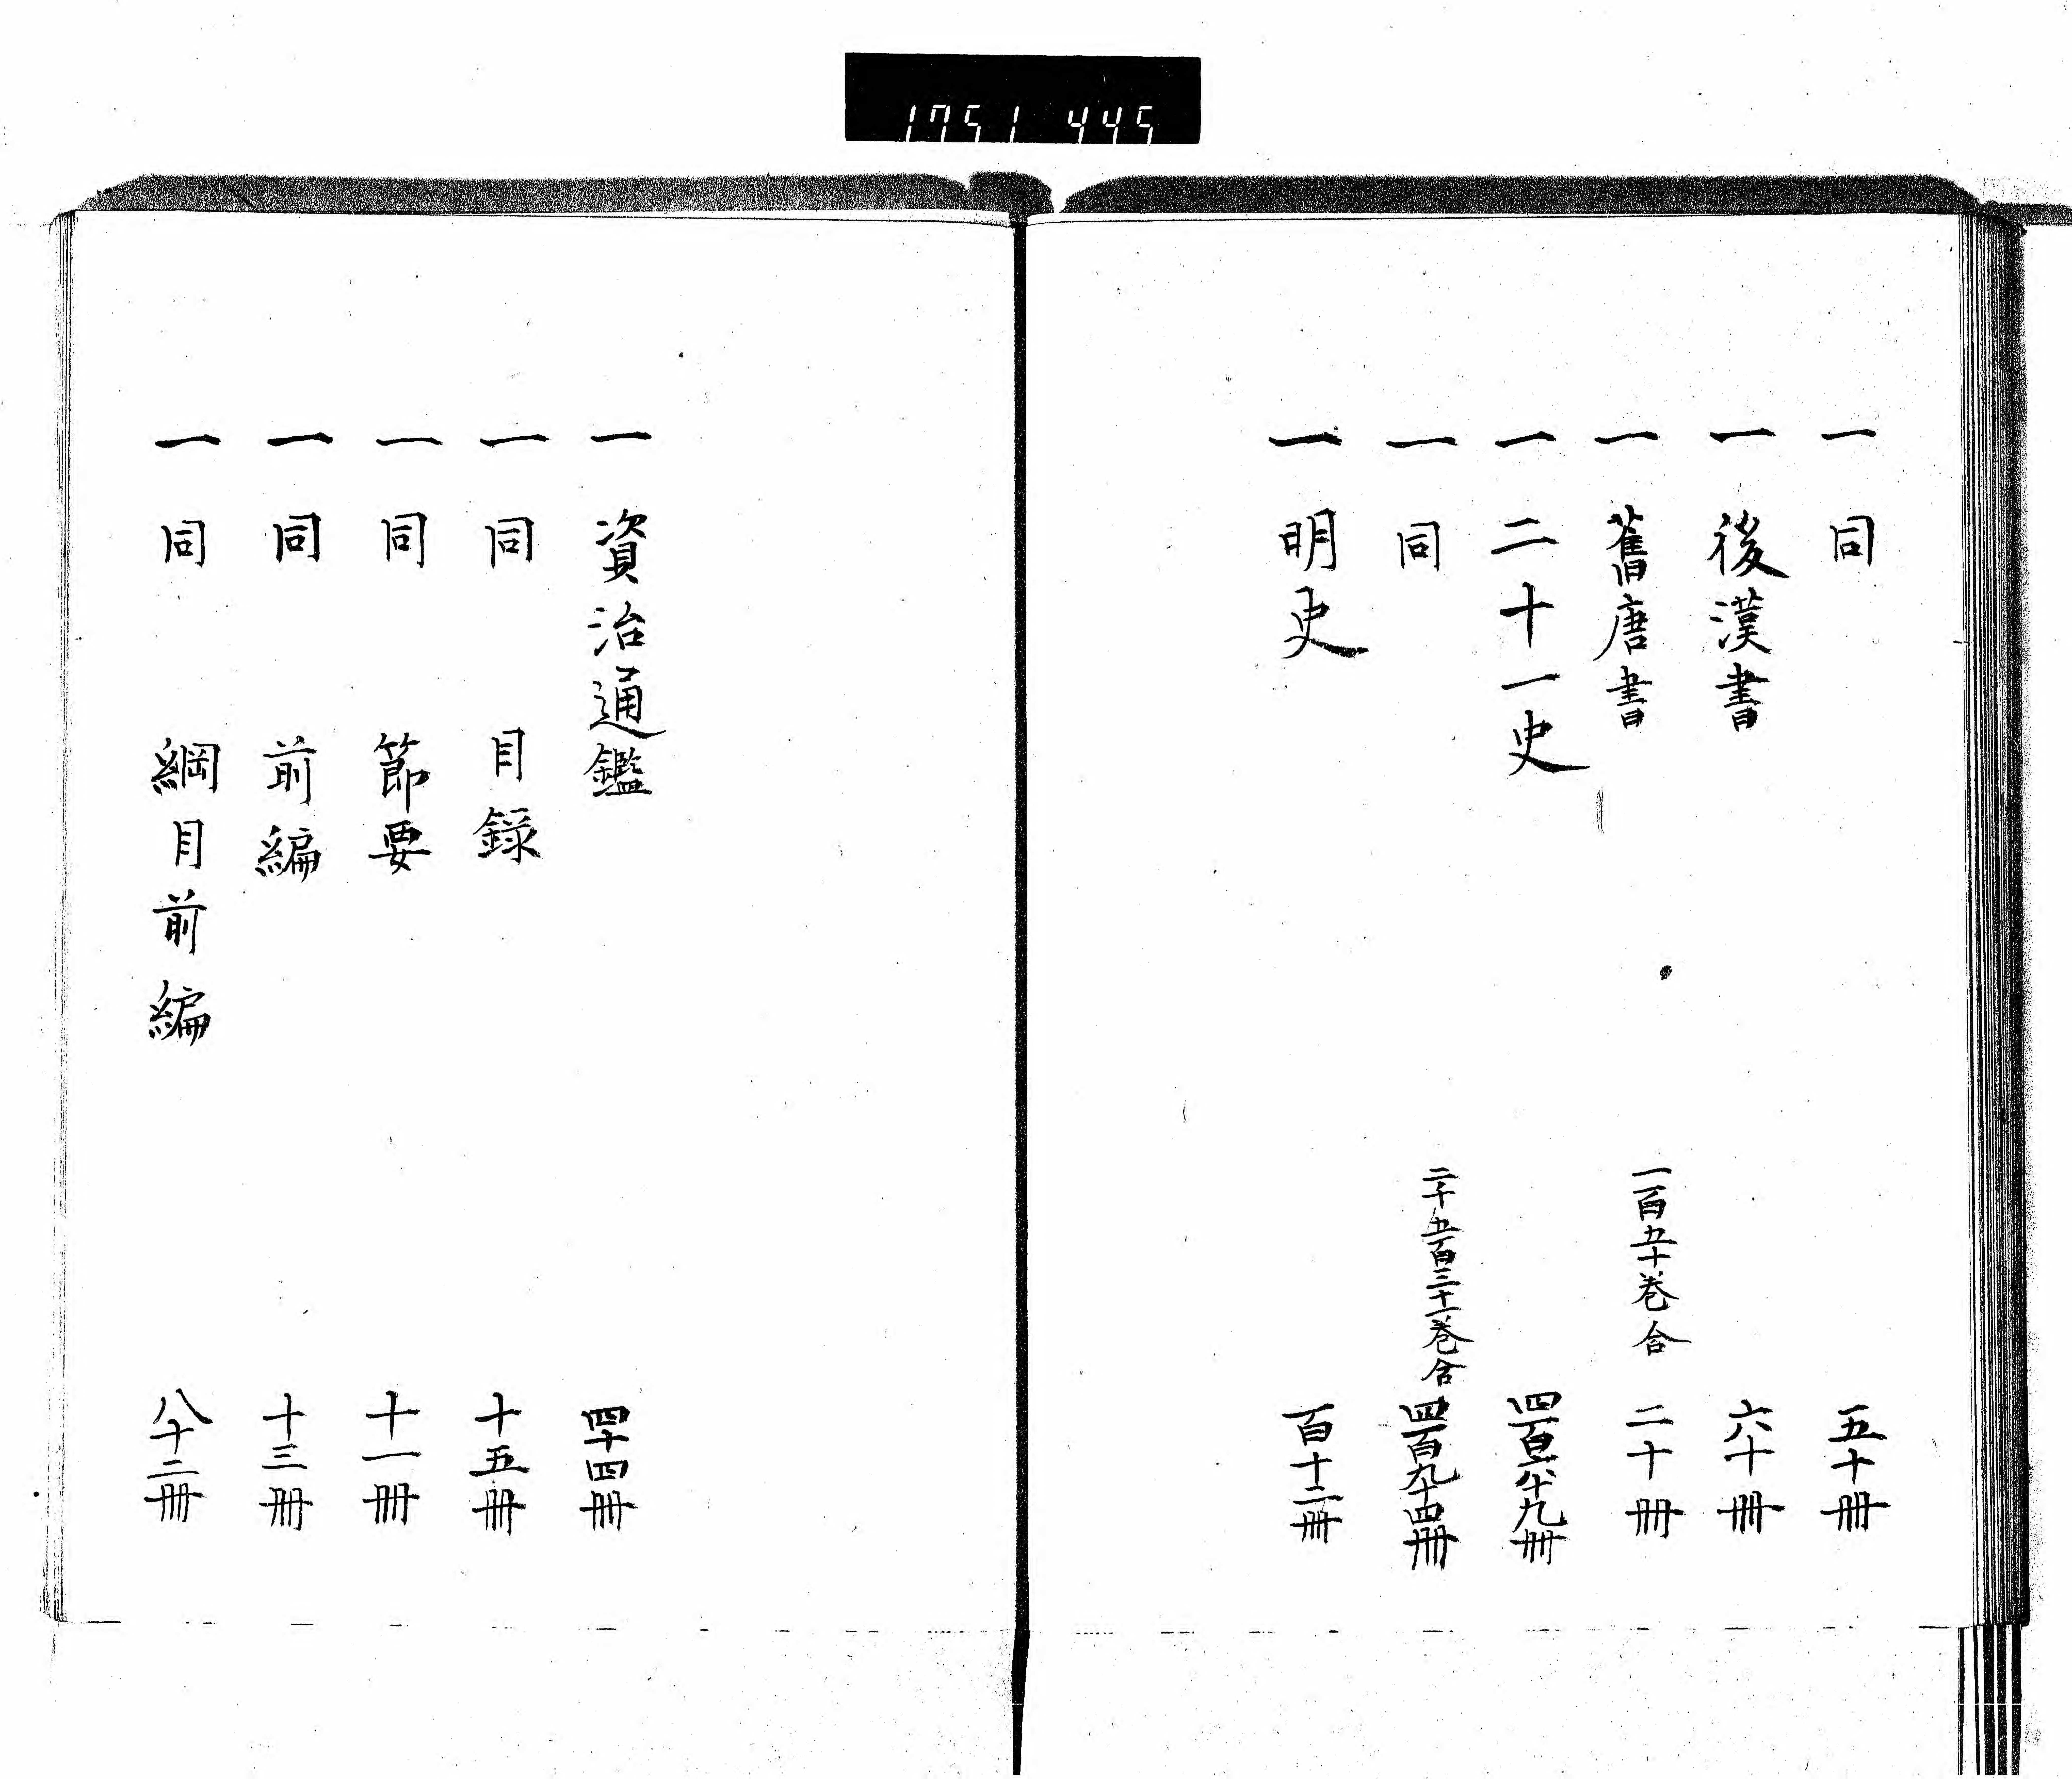 1751 445
一 同 五十冊
一 後漢書 六十冊
一 舊唐書 一百五十巻合 二十冊
一 二十一史 四百六十九冊
一 同 二千五百三十一巻合 四百九十四冊
一 明史 百十二冊
一 資治通鑑 四十四冊
一 同 目録 十五冊
一 同 節要 十一冊
一 同 前編 十三冊
一 同 綱目前編 八十二冊